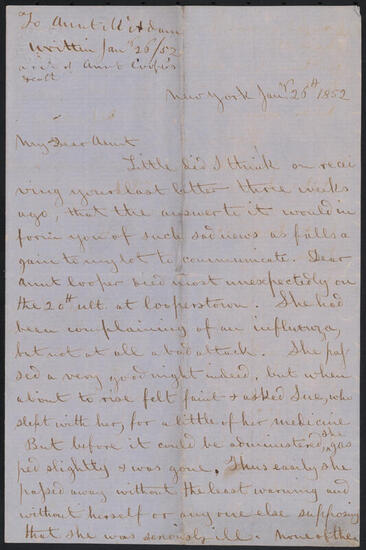 To Aunt McAdam
written Jany 26/52
a/c of Aunt Cooper's
death
New York Jany 26th 1852
My Dear Aunt
Little did I think on recei
ving your last letter three weeks
ago, that the answer to it would in
form you of such sad news as falls a
gain to my lot to communicate. Dear
Aunt Cooper died most unexpectedly on
the 20th ult. at Cooperstown. She had
been complaining of an influenza,
but not at all a bad attack. She pas
sed a very good night indeed, but when
about to rise felt faint & asked Sue, who
slept with her, for a little of her medicine
But before it could be administered, she gas
ped slightly & was gone. Thus easily she
passed away without the least warning and
without herself or any one else supposing
that she was seriously ill. None of the